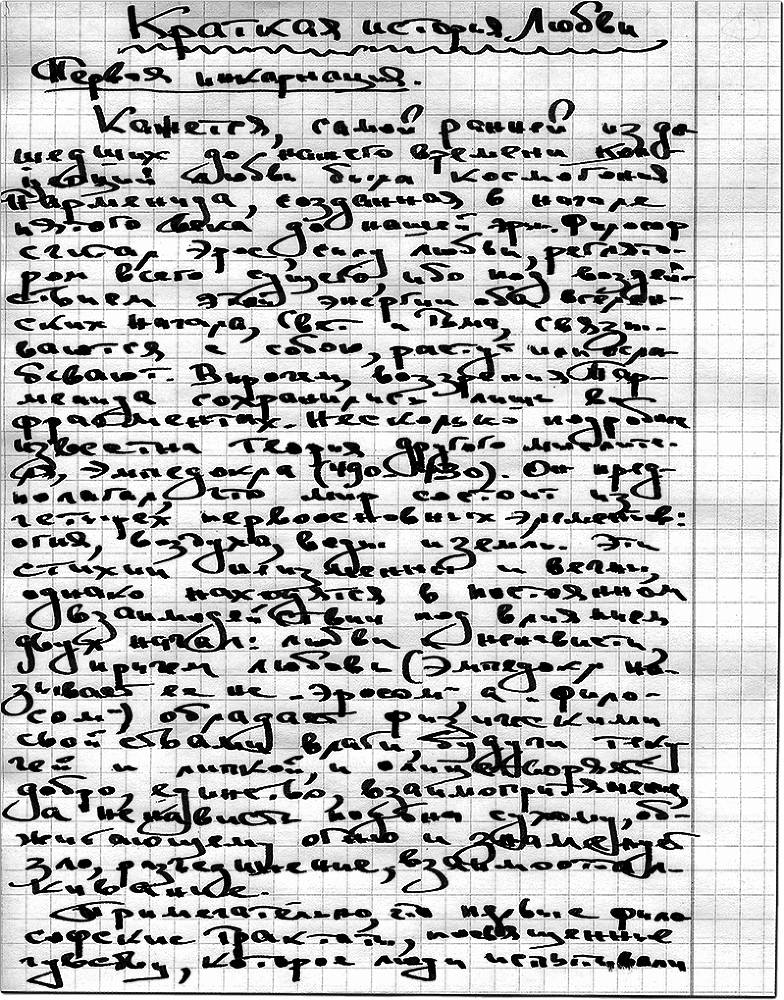 Краткая история Любви
Первая инкарнация.
Кажется, самой ранней из до-
шедших до нашего времени кон-
цепций любви была космогония
Парменида, созданная в начале
пятого века до нашей эры. Философ
считал Эрос, силу любви, регулято-
ром всего сущего, ибо под воздей-
ствием этой энергии оба вселен-
ских начала, Свет и Тьма, связы-
ваются с собою, растут или осла-
бевают. Впрочем, воззрения Пар-
менида сохранились лишь во
фрагментах. Несколько подробнее
известна теория другого мыслите-
ля, Эмпедокла (490-430). Он пред-
полагал, что мир состоит из
четырех первоосновных элементов:
огня, воздуха, воды и земли. Эти
стихии неизменны и вечны,
однако находятся в постоянном
взаимодействии под влиянием
двух начал: любви и ненависти,
причем любовь (Эмпедокл на-
зывает ее не „Эросом“ а „Фило-
сом“) обладает физическими
свойствами влаги, будучи теку-
чей и липкой, и олицетворяет
добро, единство, взаимопритяжение,
а ненависть подобна сухому, об-
жигающему огню и знаменует
зло, разъединение, взаимооттал-
кивание.
Примечательно, что первые фило-
софские трактаты, посвященные
чувству, которое люди испытывали